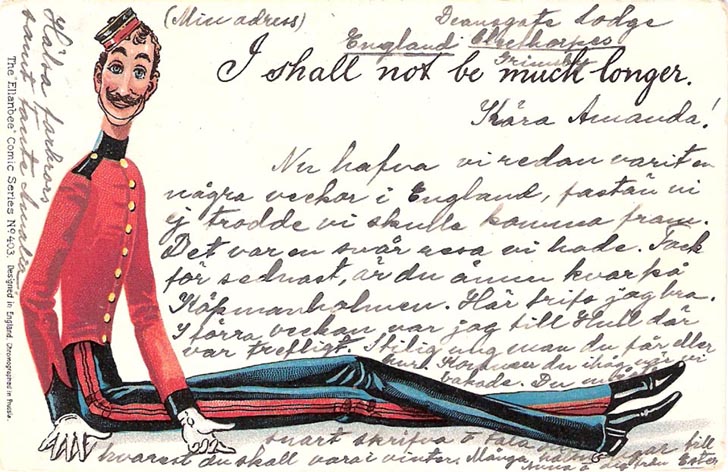 (Min adress) Deansgate Lodge
England Cleethorpes
Grimsby
I shall not be much longer.
Kära Amanda!
Nu hafva vi redan varit en
några veckor i England, fastän vi
ej trodde vi skulle komma fram.
Det var en svår resa vi hade. Tack
för sednast, är du ännu kvar på
Köpmanholmen. Här trifs jag bra.
I förra veckan var jag till Hull där
var trefligt. Stilig ung man du får eller
hur. Kommer du ihåg när vi
Du
snart skrifva o tala till
hvarest du skall vara i vinter. Många
Hälsa farmors
samt tante Amalia
The "Ellanbee" Comic Series No 403. Designed in England. Chromographed in Prussia.